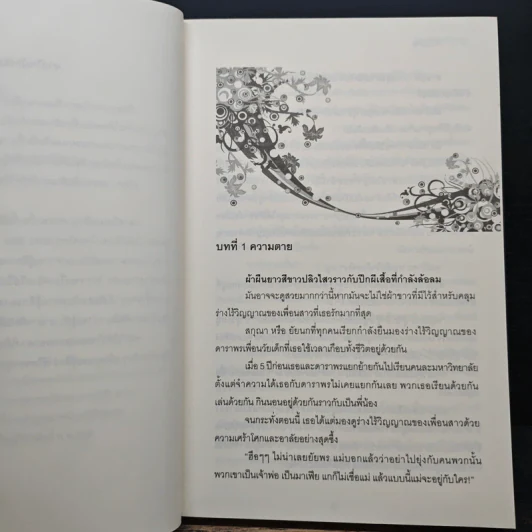 บทที่ 1 ความตาย
ผ้าผืนยาวสีขาวปลิวไสวราวกับปีกผีเสื้อที่กำลังล้อลม
มันอาจจะดูสวยมากกว่านี้หากมันจะไม่ใช่ผ้าขาวที่มีไว้สำหรับคลุม
ร่างไร้วิญญาณของเพื่อนสาวที่เธอรักมากที่สุด
สกุณา หรือ ยัยนกที่ทุกคนเรียกกำลังยืนมองร่างไร้วิญญาณของ
ดาราพรเพื่อนวัยเด็กที่เธอใช้เวลาเกือบทั้งชีวิตอยู่ด้วยกัน
เมื่อ 5 ปีก่อนเธอและดาราพรแยกย้ายกันไปเรียนคนละมหาวิทยาลัย
ตั้งแต่จำความได้เธอกับดาราพรไม่เคยแยกกันเลย พวกเธอเรียนด้วยกัน
เล่นด้วยกัน กินนอนอยู่ด้วยกันราวกับเป็นพี่น้อง
จนกระทั่งตอนนี้ เธอได้แต่มองดูร่างไร้วิญญาณของเพื่อนสาวด้วย
ความเศร้าโศกและอาลัยอย่างสุดซึ้ง
"ฮือๆๆ ไม่น่าเลยยัยพร แม่บอกแล้วว่าอย่าไปยุ่งกับคนพวกนั้น
พวกเขาเป็นเจ้าพ่อ เป็นมาเฟีย แกก็ไม่เชื่อแม่ แล้วแบบนี้แม่จะอยู่กับใคร!"